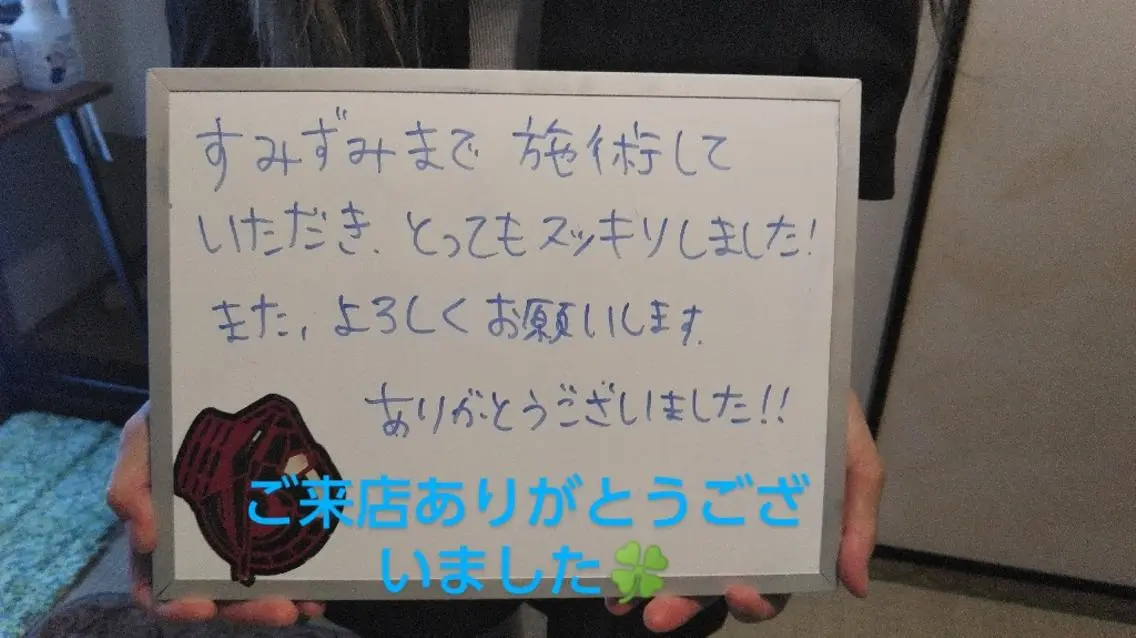 すみずみまで 施術して
いただき、とってもスッキリしました!
また、よろしくお願いします。
ありがとうございました!!
ご来店ありがとうござ
いました🍀